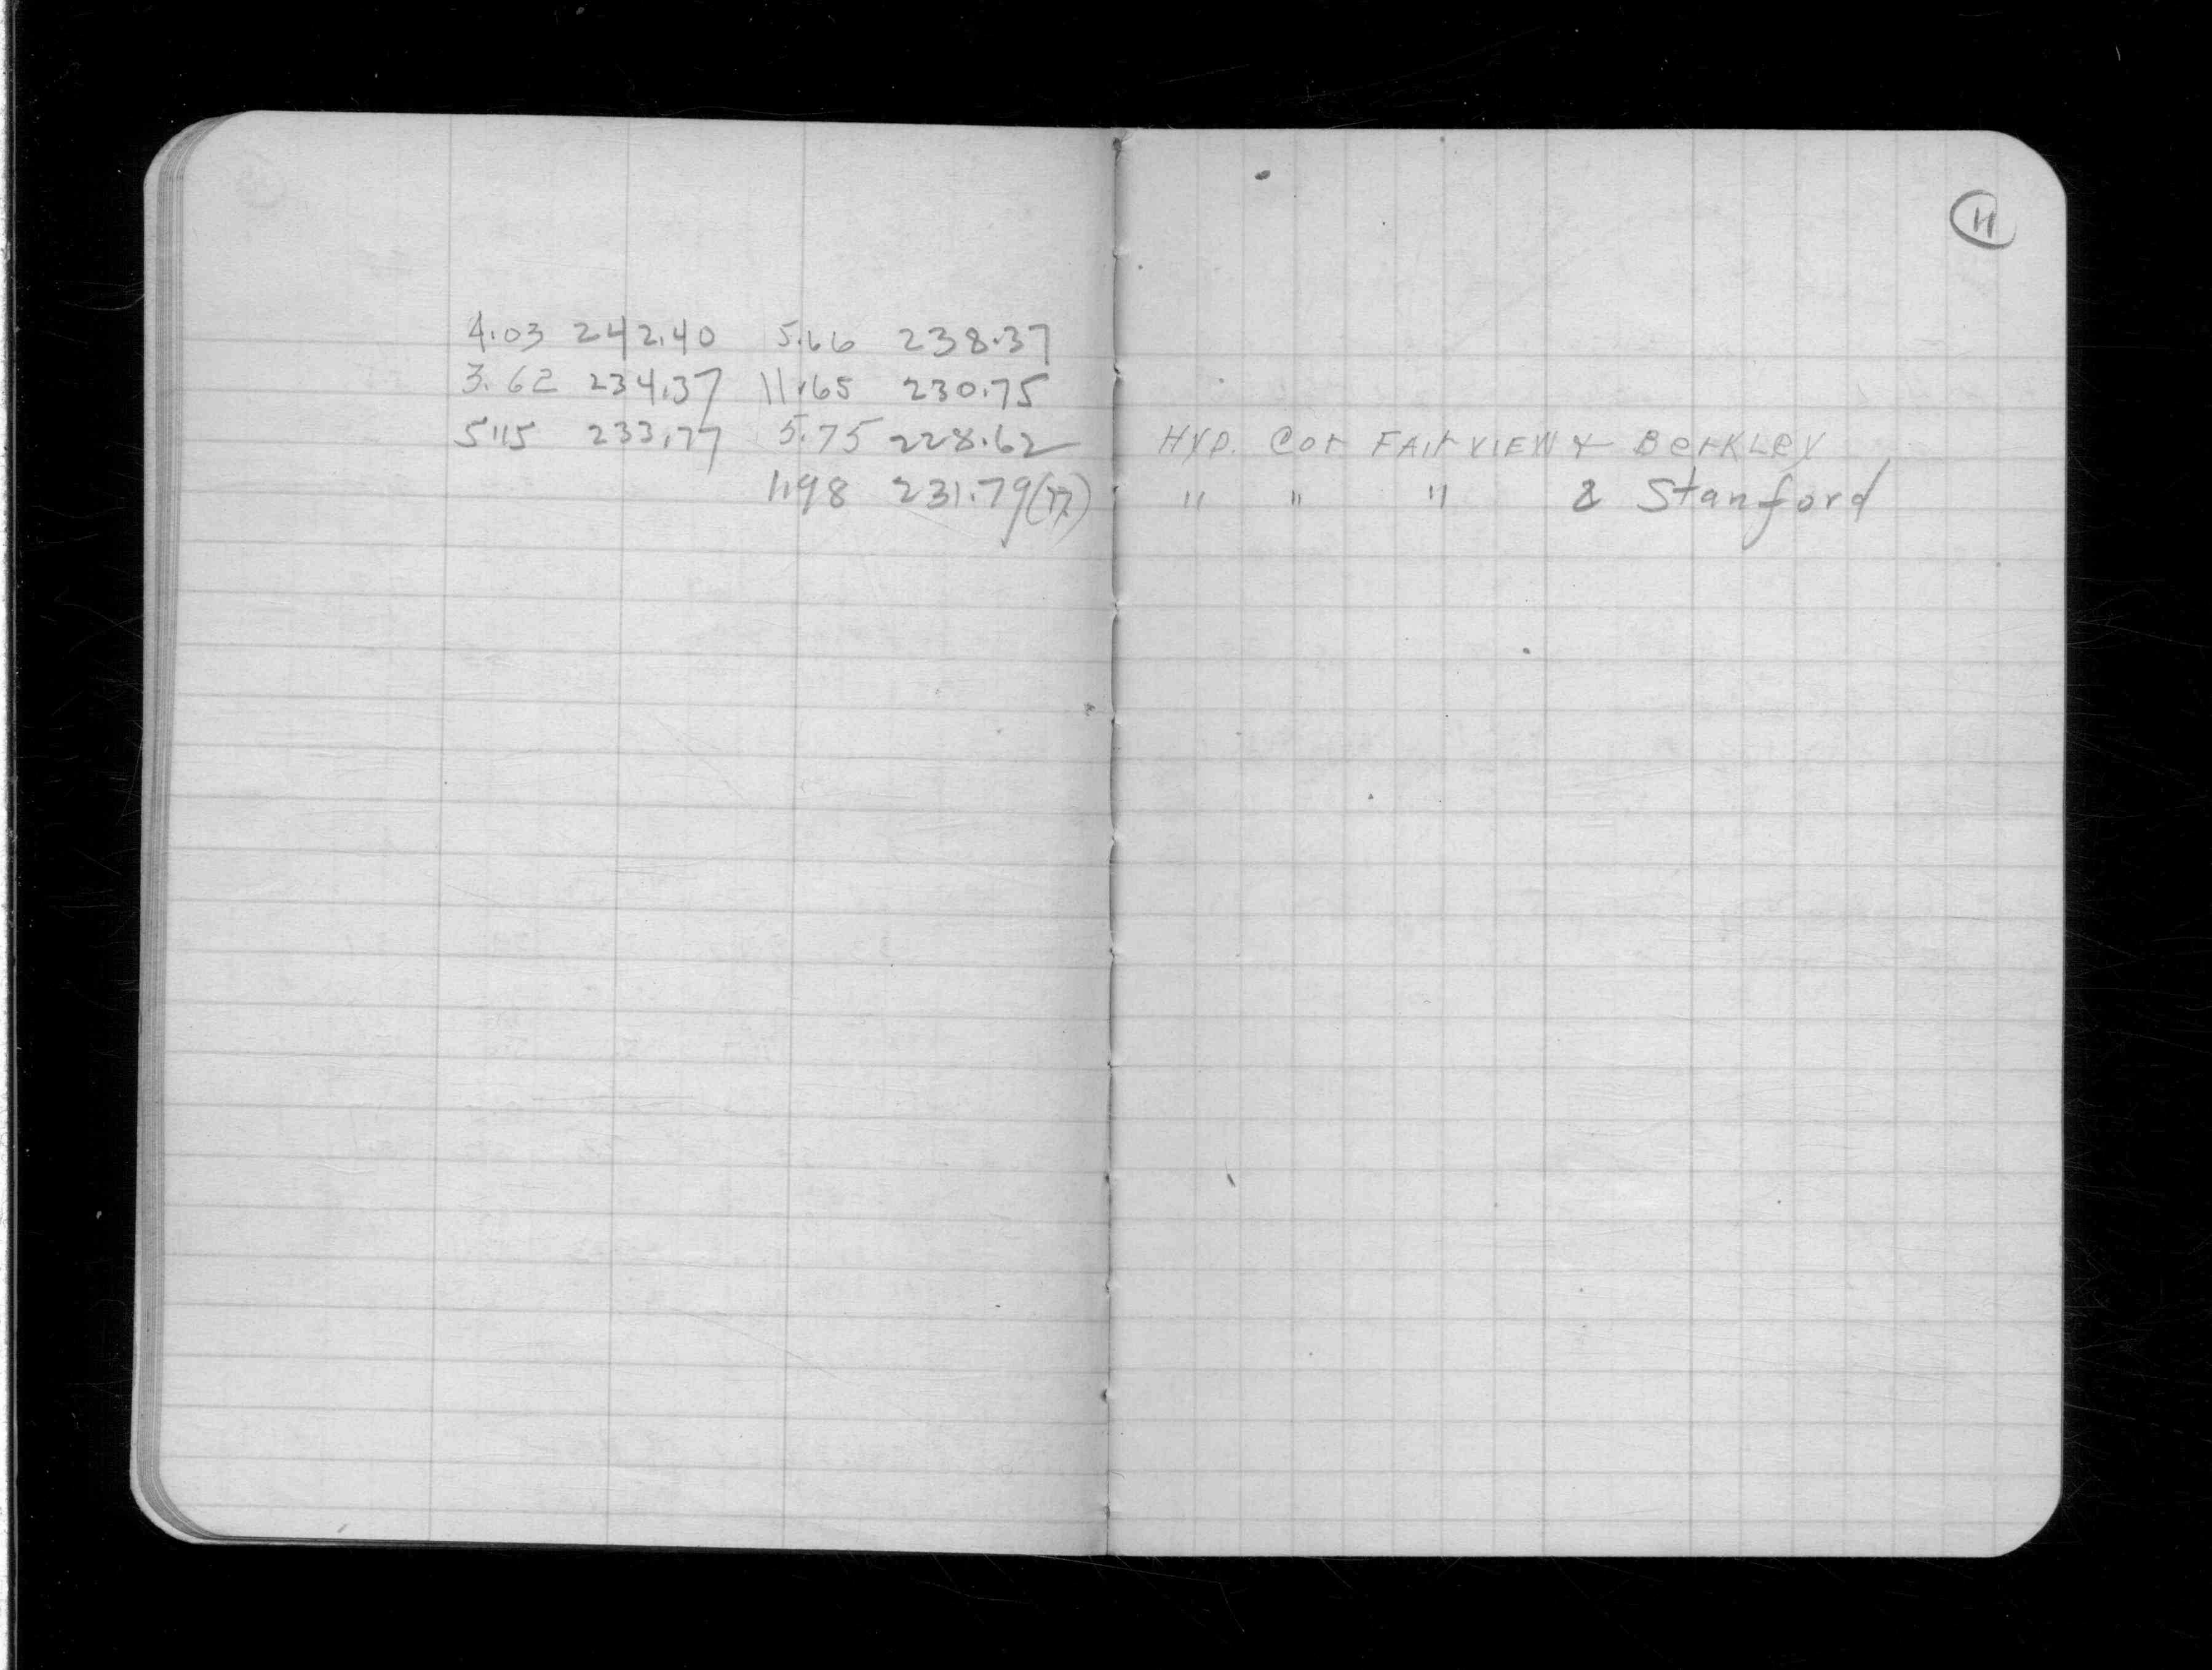 11
4.03 242.40 5.66 238.37
3.62 234.37 11.65 230.75
5.15 233.77 5.75 228.62 HYD. Cor FAIRVIEW & BerKLey
1.98 231.79(77) " " " & Stanford